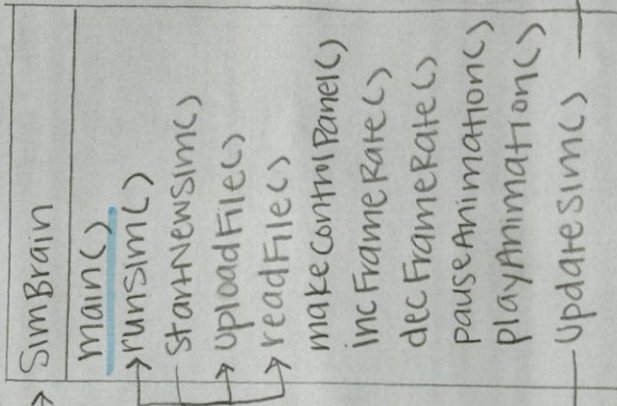 SimBrain
main()
runSim()
startNewSim()
uploadFile()
readFile()
makeControlPanel()
incFrameRate()
decFrameRate()
pauseAnimation()
playAnimation()
updateSim()